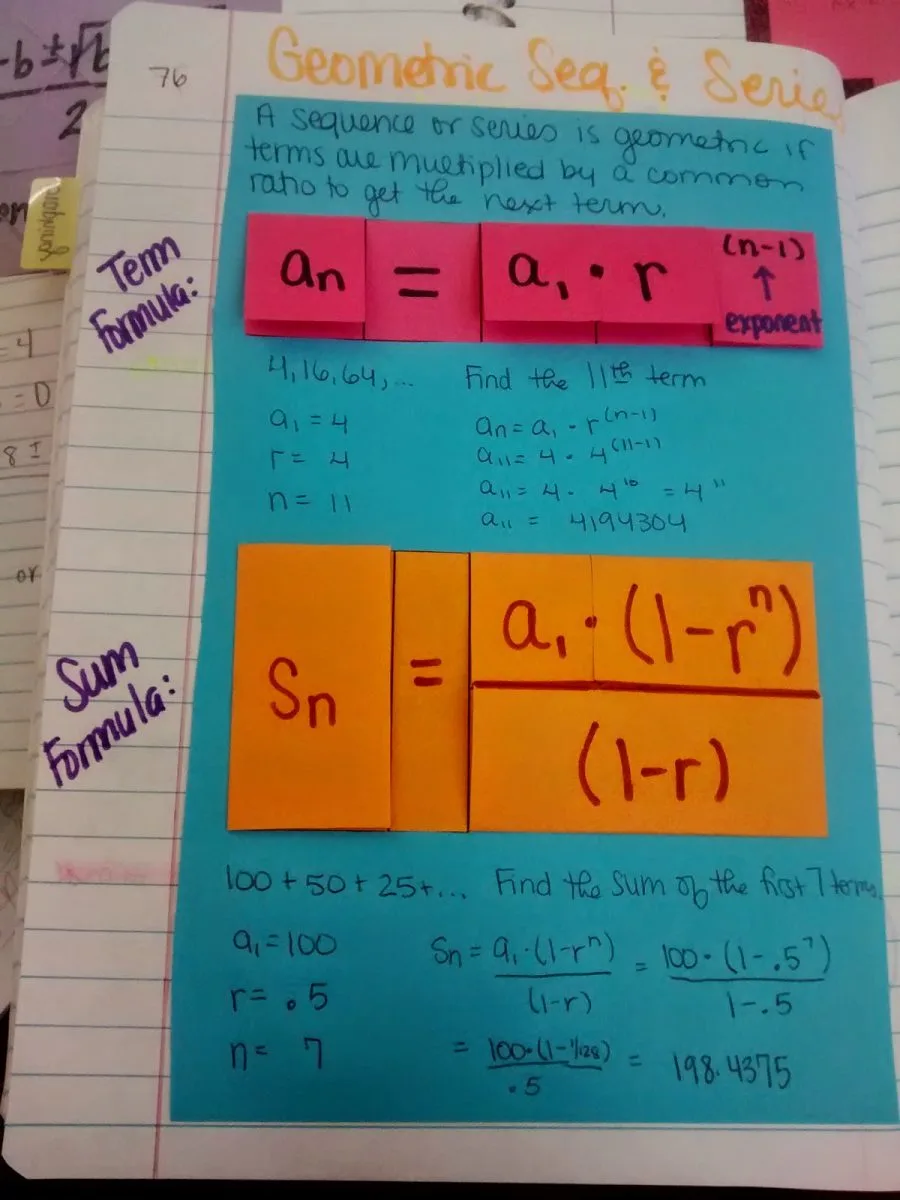 -b ± √b
2
76
Geometric Seq. & Serie
A sequence or series is geometric if
terms are multiplied by a common
ratio to get the next term.
Term
Formula:
an = a₁ · r (n-1)
↑
exponent
4, 16, 64, ... Find the 11th term
a₁ = 4
r = 4
n = 11
an = a₁ · r⁽ⁿ⁻¹⁾
a₁₁ = 4 · 4⁽¹¹⁻¹⁾
a₁₁ = 4 · 4¹⁰ = 4¹¹
a₁₁ = 4194304
Sum
Formula:
Sn = a₁ · (1-rⁿ)
(1-r)
100 + 50 + 25 + ... Find the sum of the first 7 terms.
a₁ = 100
r = .5
n = 7
Sn = a₁ · (1-rⁿ) = 100 · (1-.5⁷)
(1-r) 1-.5
= 100 · (1-1/128) = 198.4375
.5
= 4
= 0
8 ±
or